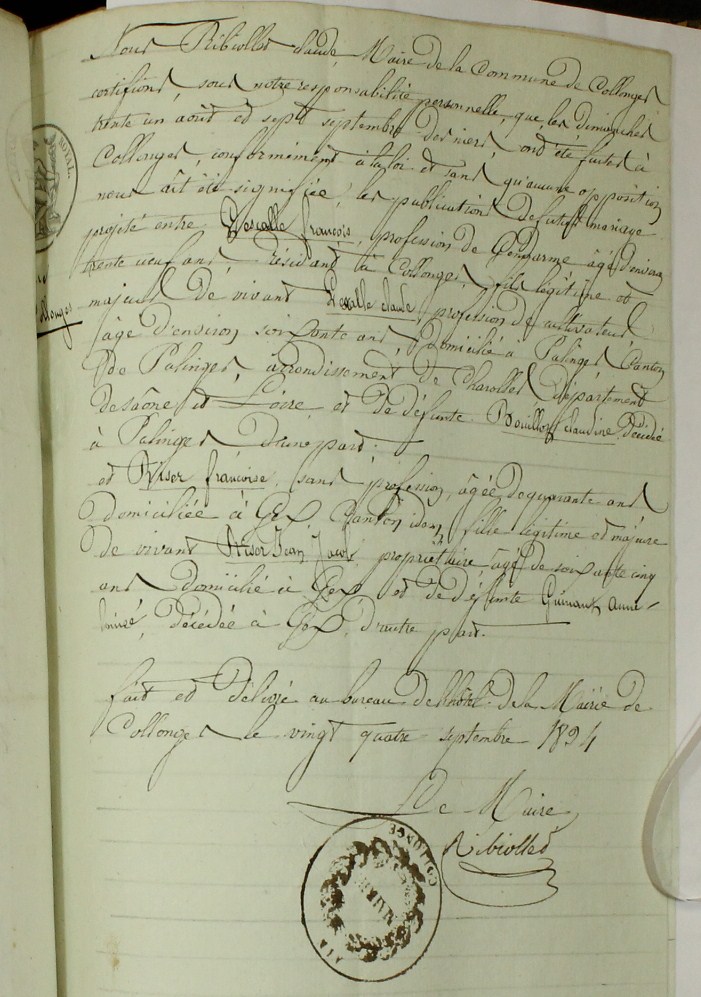 Nous Ribiollet Claude, Maire de la Commune de Collonges
certifions, sous notre responsabilité personnelle, que les dimanches
trente un août et sept septembre derniers, ont été faites à
Collonges, conformément à la loi et sans qu'aucune opposition
nous ait été signifiée, les publications de futur mariage
projeté entre françois, profession de Gendarme âgé d'environ
trente neuf ans, résidant à Collonges, fils légitime et
majeur de vivant Claude, profession de cultivateur
âgé d'environ soixante ans, domicilié à Palinges, Canton
de Palinges, arrondissement de Charolles, département
de saône et Loire, et de défunte Bouillot claudine, décédée
à Palinges d'une part;
et françoise, sans profession, âgée de quarante ans
domiciliée à Gex, Canton idem, fille légitime et majeure
de vivant Jean Jacob, propriétaire âgé de soixante cinq
ans domicilié à Gex et de défunte anne-
décédée à Gex, d'autre part.
fait et délivré au bureau de l'hôtel de la Mairie de
Collonges le vingt quatre septembre 1834
Le Maire
Ribiollet
COLLONGE
MAIRIE
ROYAL
Collonges